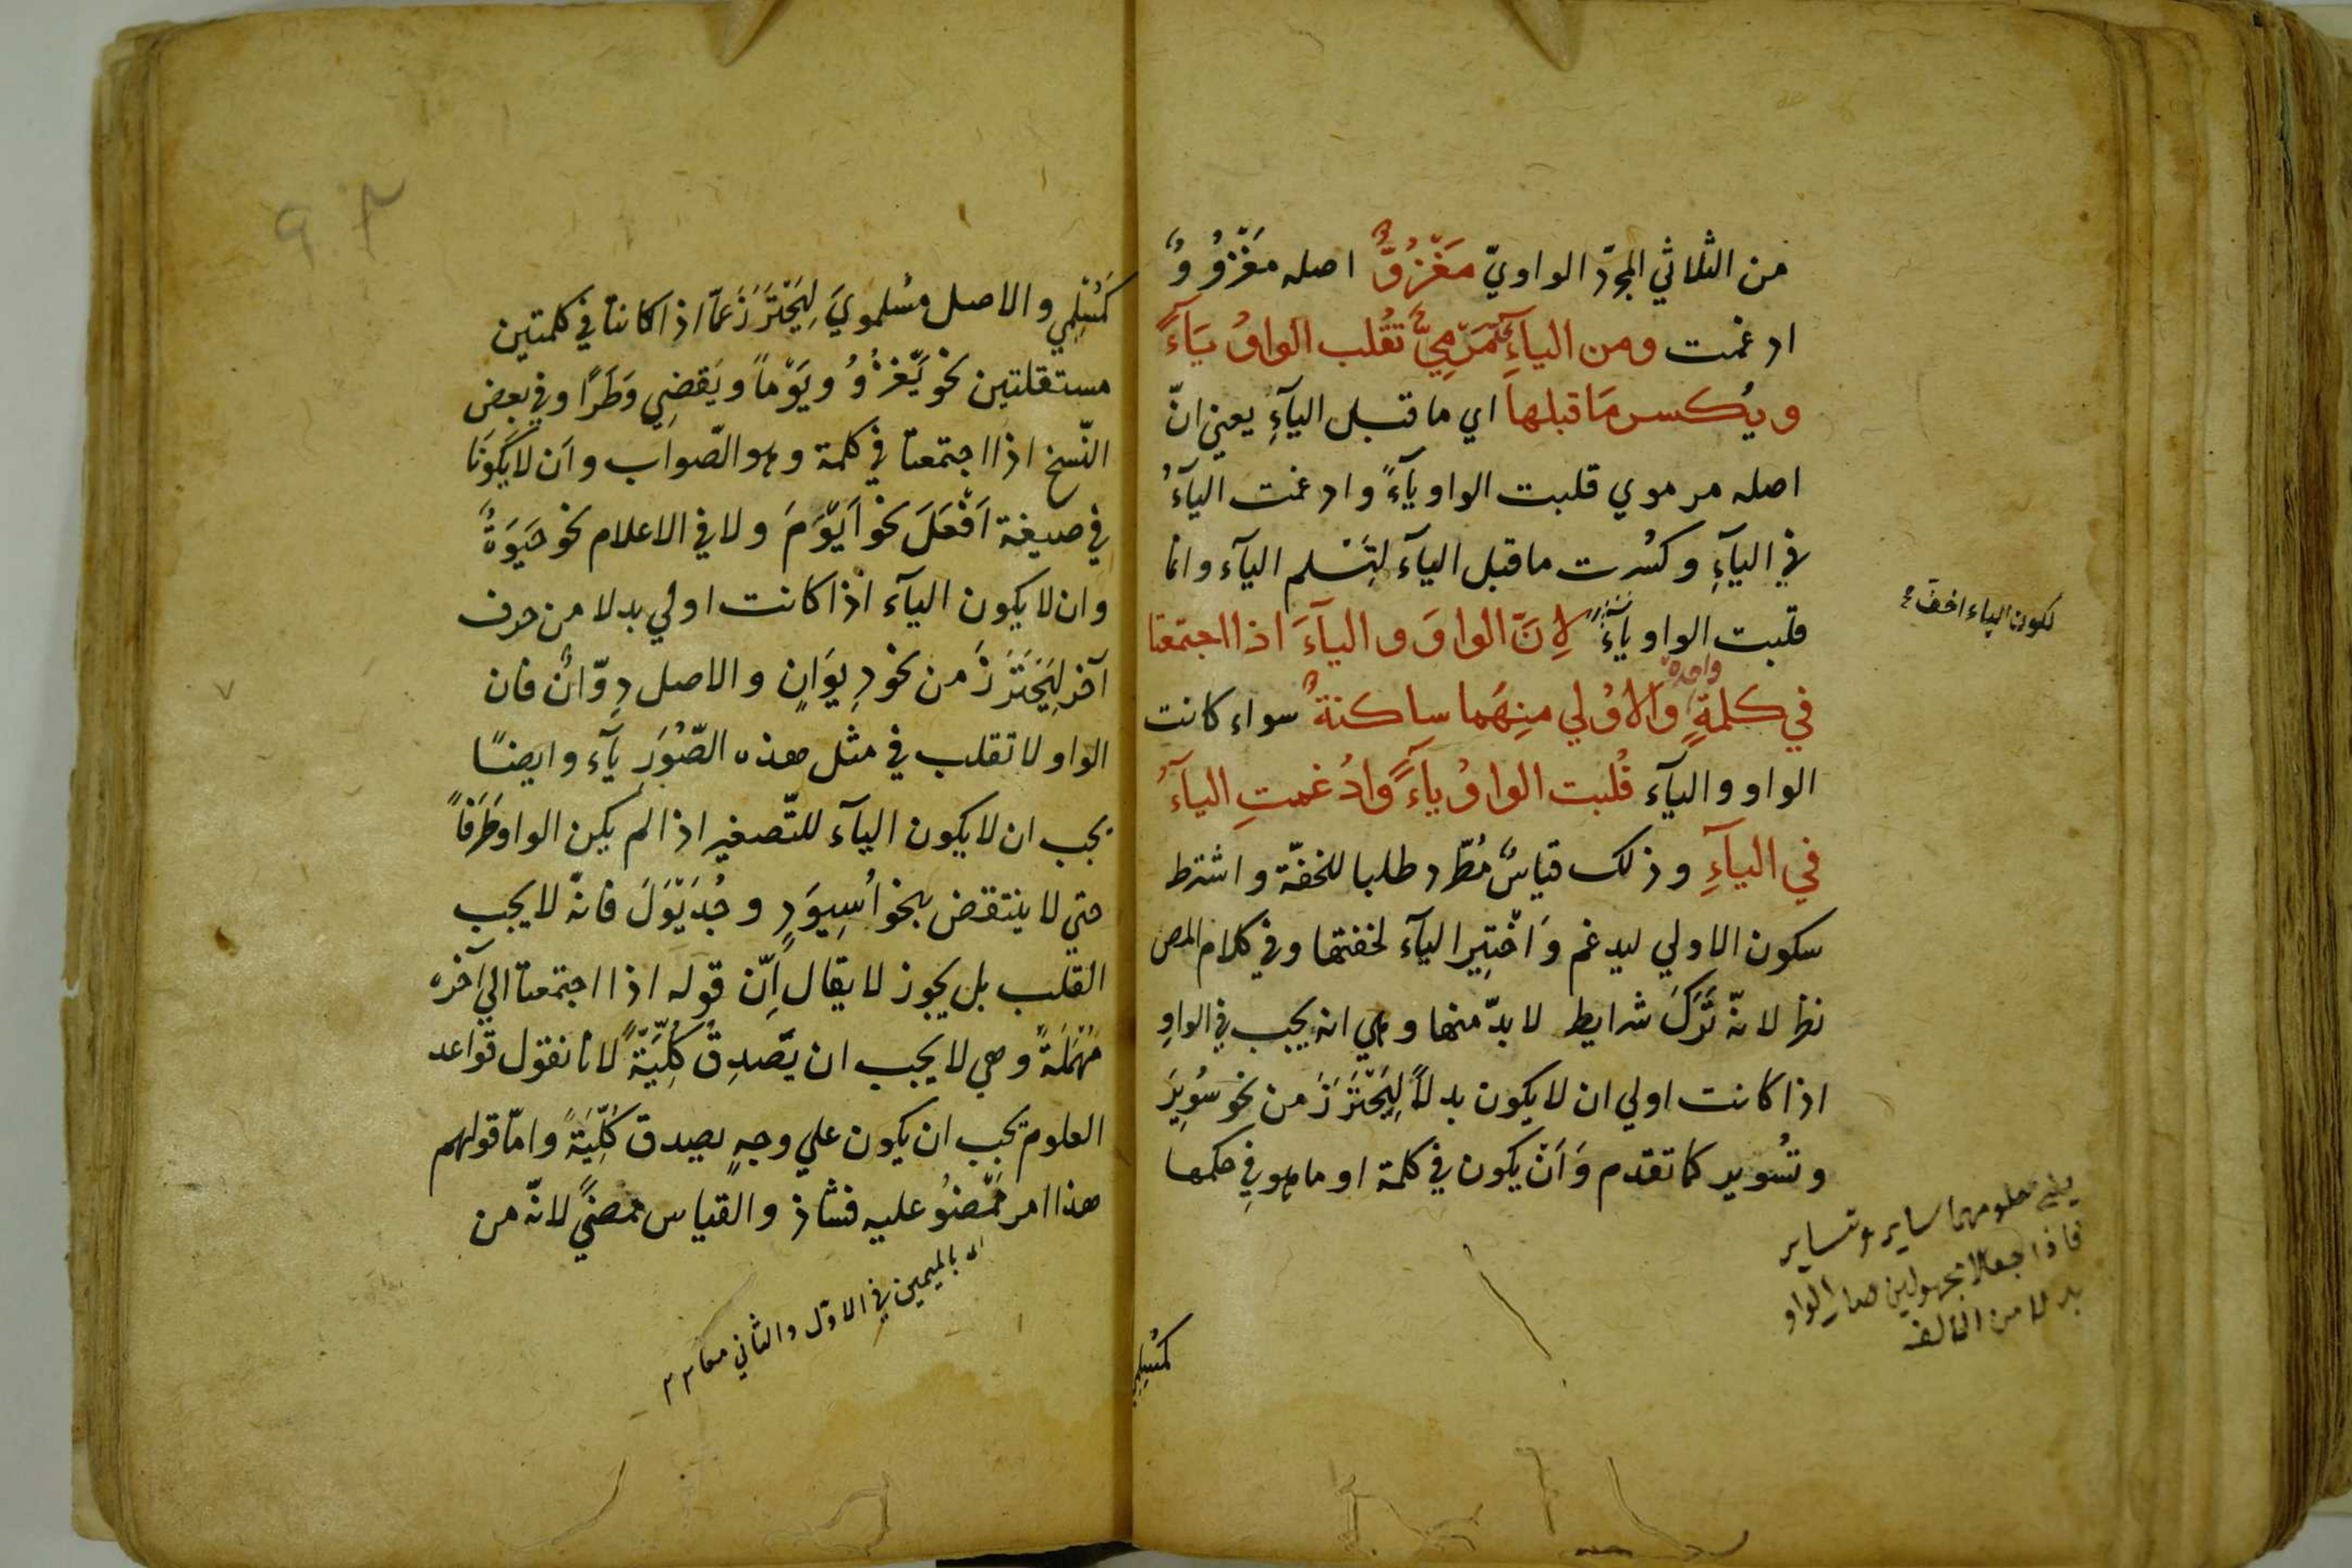 من الثلاثي المجرّد الواويّ مَغْزُوٌّ اصله مَغْزُوْوٌ
ادغمت ومن الياءِ مَرْمِيٌّ تُقْلب الواوُ يَآءً
ويُكسر مَا قبلها اي ما قبل اليآءِ يعني انّ
اصله مرموي قلبت الواو يآءً وادغمت اليآءُ
في اليآءِ وكُسْرت ما قبل اليآء لِتَسْلم اليآء وانما
قلبت الواو يآءً لِاَنَّ الواوَ و اليآءَ اذا اجتمعتا
لكون الياء اخف
واحدة
في كلمةٍ وَالاُوْلي مِنهَما ساكنةٌ سواء كانت
الواو و اليآء قُلبت الواوُ يآءً وَادُغمتِ اليآءُ
في اليآءِ وذلك قياسٌ مُطّرد طلبا للخفّة واشترط
سكون الاولي ليدغم وَاخْتِير اليآء لخفتها وفي كلام المص
نظر لانّه تَرَكَ شرايط لا بدّ منها وهي انه يجب في الواوِ
اذا كانت اولي ان لا يكون بدلاً لِيَحْتَرَزَ من نحو سُوِيرَ
وتُسُوير كما تقدم وَاَنْ يكون في كلمة او ما هو في حكمها
معلومهما ساير وتساير
فاذا جعلا مجهولين صار الواو
بدلا من الالف
كمُسْلِمِي
٩٣
كمُسْلِمِي و الاصل مسُلمويَ لِيَحْتَرَزَ عَمّا اذا كانتا في كلمتين
مستقلتين نحو يَغْزُوُ ويَوْماً ويَقضِي وَطَرًا وفي بعض
النّسخ اذا اجتمعتا في كلمة وهو الصّواب وان لا يَكُونَا
في صيغة اَفْعَلَ نحو اَيْوَمَ ولا في الاعلام نحو حَيْوَةُ
وان لا يكون اليآء اذا كانت اولي بدلا من حرف
آخر لِيَحْتَرَزَ من نحو دِيوَانٍ والاصل دِوّانٌ فان
الواو لا تقلب في مثل هذه الصّوَرِ يآء وايضًا
يجب ان لا يكون اليآء للتّصغير اذا لم يكن الواو طَرَفاً
حتي لا ينتقض بنحو اُسيوَدٍ و جُدَيْوَلَ فانّه لا يجب
القلب بل يجوز لا يقال اِنّ قوله اذا اجتمعتا الي آخره
مُهْمَلَةً وهي لا يجب ان يَصدِقَ كُلِّيَّةً لانا نقول قواعد
العلوم يجب ان يكون علي وجهٍ يصدق كُلِّيَّةً وامّا قولهم
هذا امر مَمْضُوُ عليه فشاذ والقياس ممضيٌ لانّه من
بالميمين في الاوّل والثاني معا